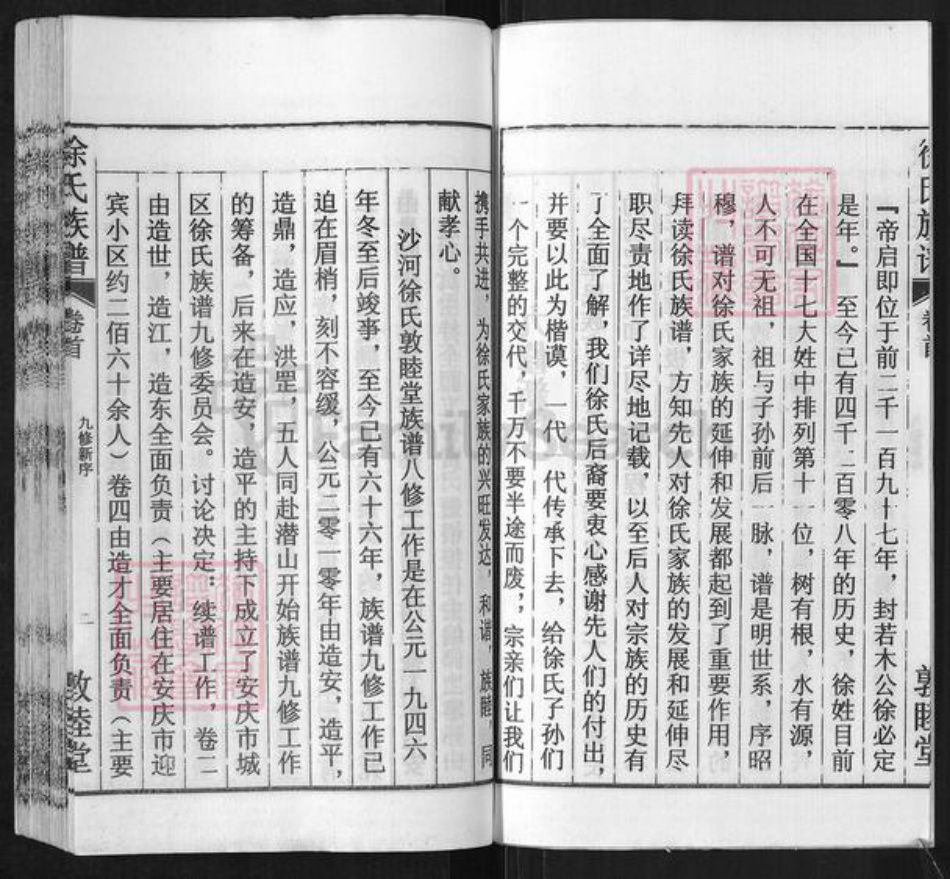 徐氏族谱 卷首 敦睦堂
『帝启即位于前二千一百九十七年，封若木公徐必定
是年。』 至今已有四千二百零八年的历史，徐姓目前
在全国十七大姓中排列第十一位，树有根，水有源，
人不可无祖，祖与子孙前后一脉，谱是明世系，序昭
穆，谱对徐氏家族的延伸和发展都起到了重要作用，
拜读徐氏族谱，方知先人对徐氏家族的发展和延伸尽
职尽责地作了详尽地记载，以至后人对宗族的历史有
了全面了解，我们徐氏后裔要衷心感谢先人们的付出，
并要以此为楷谟，一代一代传承下去，给徐氏子孙们
一个完整的交代，千万不要半途而废，，宗亲们让我们
携手共进，为徐氏家族的兴旺发达，和谐，族睦，同
献孝心。
沙河徐氏敦睦堂族谱八修工作是在公元一九四六
年冬至后竣事，至今已有六十六年，族谱九修工作已
迫在眉梢，刻不容缓，公元二零一零年由造安，造平，
造鼎，造应，洪罡，五人同赴潜山开始族谱九修工作
的筹备，后来在造安，造平的主持下成立了安庆市城
区徐氏族谱九修委员会。讨论决定：续谱工作，卷二
由造世，造江，造东全面负责（主要居住在安庆市迎
宾小区约二佰六十余人）卷四由造才全面负责（主要
徐氏族谱 卷首 九修新序 二 敦睦堂